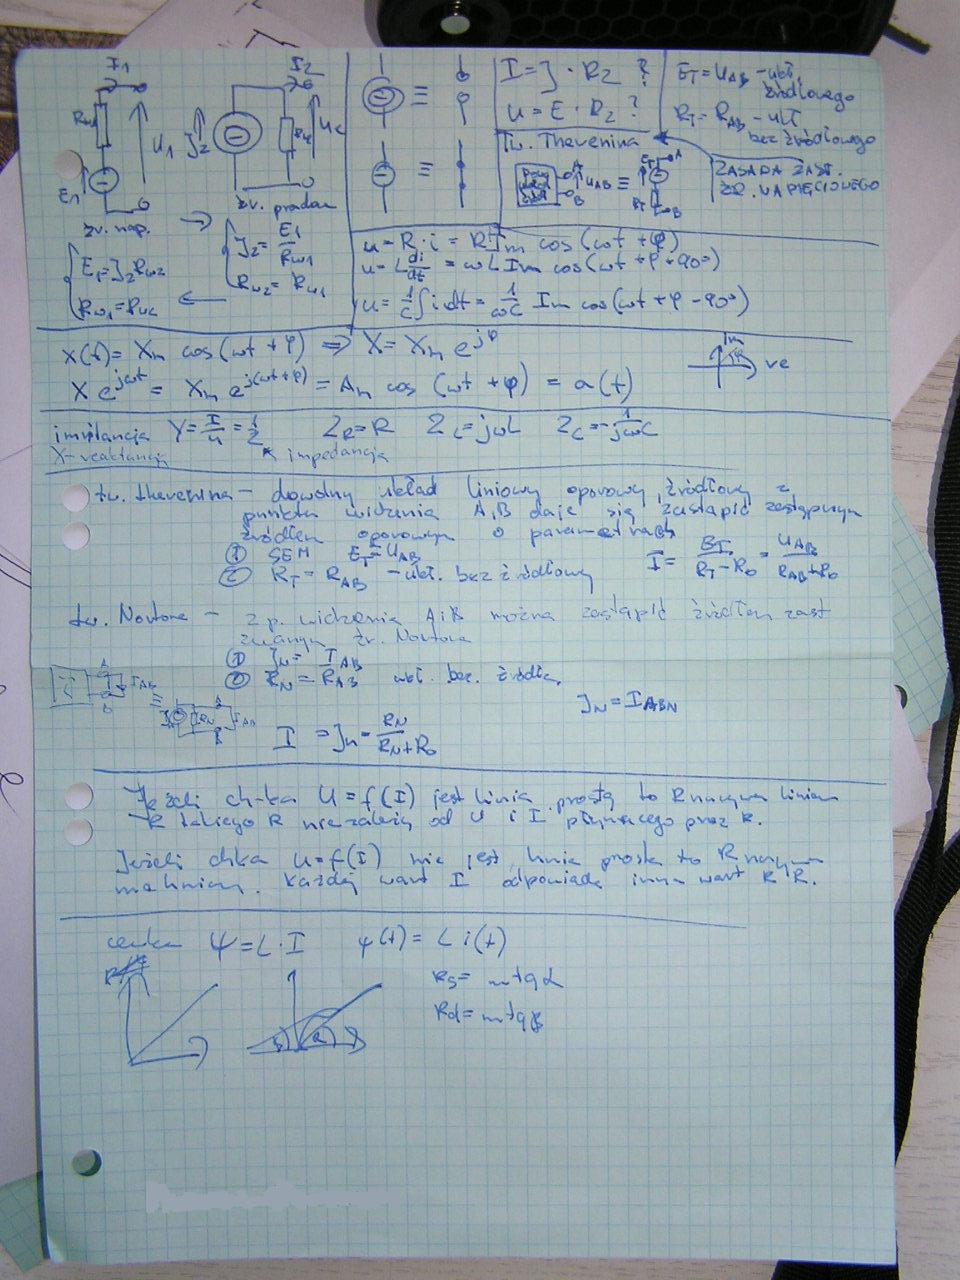 I1
Rw1
U1
E1
źr. nap.
I2
J2
Rw2
U2
źr. prądu
E1=J2Rw2
Rw1=Rw2
J2=E1/Rw1
Rw2=Rw1
≡
≡
I=J·R2 ?
U=E·R2 ?
ET=UAB -ukł. źródłowego
RT=RAB -ukł. bez źródłowego
Tw. Thevenina
A
UAB
B
≡
ET
A
RT
B
ZASADA ZAST.
ŹR. NAPIĘCIOWEGO
u=R·i=R Im cos(ωt+φ)
u=L di/dt = ωL Im cos(ωt+φ+90°)
u=1/C ∫i dt= 1/ωC Im cos(ωt+φ-90°)
x(t)= Xm cos(ωt+φ) ⇒ X= Xm e^jφ
Im
φ
X e^jωt = Xm e^j(ωt+φ) = Am cos(ωt+φ) = a(t)
Y=I/U=1/Z ZR=R ZL=jωL ZC=1/jωC
X-reaktancja
impedancja
tw. thevenina - dowolny układ liniowy oporowy źródłowy z
punktu widzenia A i B daje się zastąpić zastępczym
źródłem oporowym o parametrach
① SEM ET=UAB
② RT=RAB -ukł. bez źródłowy
I= ET/RT-R0 = UAB/RAB+R0
tw. Nortona - z p. widzenia A i B można zastąpić źródłem zast
zwanym źr. Nortona
① JN=IAB
② RN=RAB ukł. bez. źródła.
A
IAB
B
≡
RN
JN=IABN
I =JN= RN/RN+R0
Jeżeli ch-ka U=f(I) jest linią prostą to R nazywa liniow
R takiego R nie zależy od U i I płynącego przez R.
Jeżeli chka U=f(I) nie jest linią prostą to R nazywa
nieliniow. Każdej wart I odpowiada inna wart R.
cewka Ψ=L·I ψ(t)= L i(t)
Rs= m tg α
Rd= m tg β